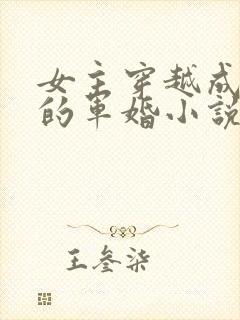 女主穿越成
的军婚小說
王叁柒